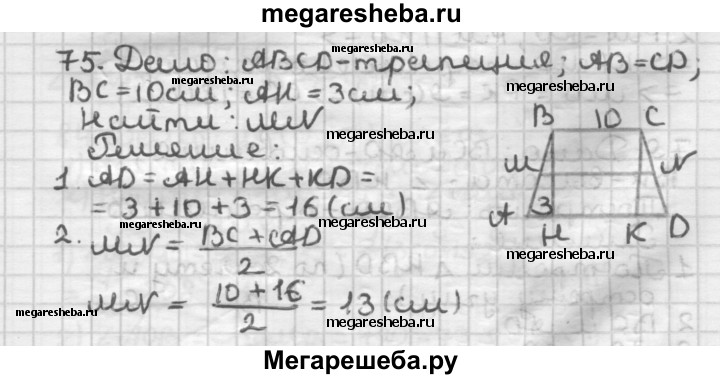 megaresheba.ru
75. Дано: ABCD-трапеция; AB=CD;
BC=10см; AH=3см;
Найти: MN
Решение:
1. AD=AH+HK+KD=
=3+10+3=16(см)
2. MN = (BC+AD)/2
MN = (10+16)/2 = 13(см)
B 10 C
M N
A 3 H K D
megaresheba.ru
megaresheba.ru
megaresheba.ru
megaresheba.ru
megaresheba.ru
megaresheba.ru
megaresheba.ru
megaresheba.ru
Мегарешеба.ру